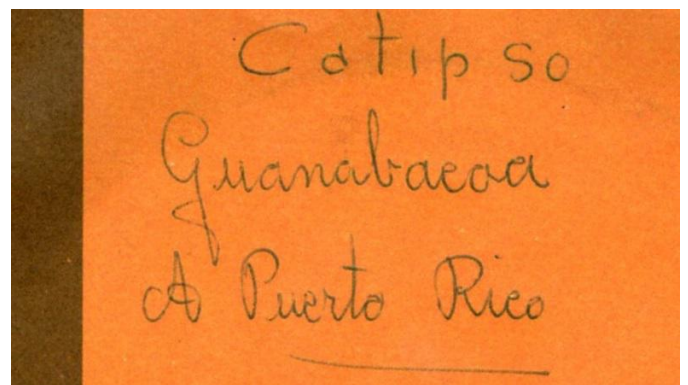 Catipso
Guanabacoa
A Puerto Rico